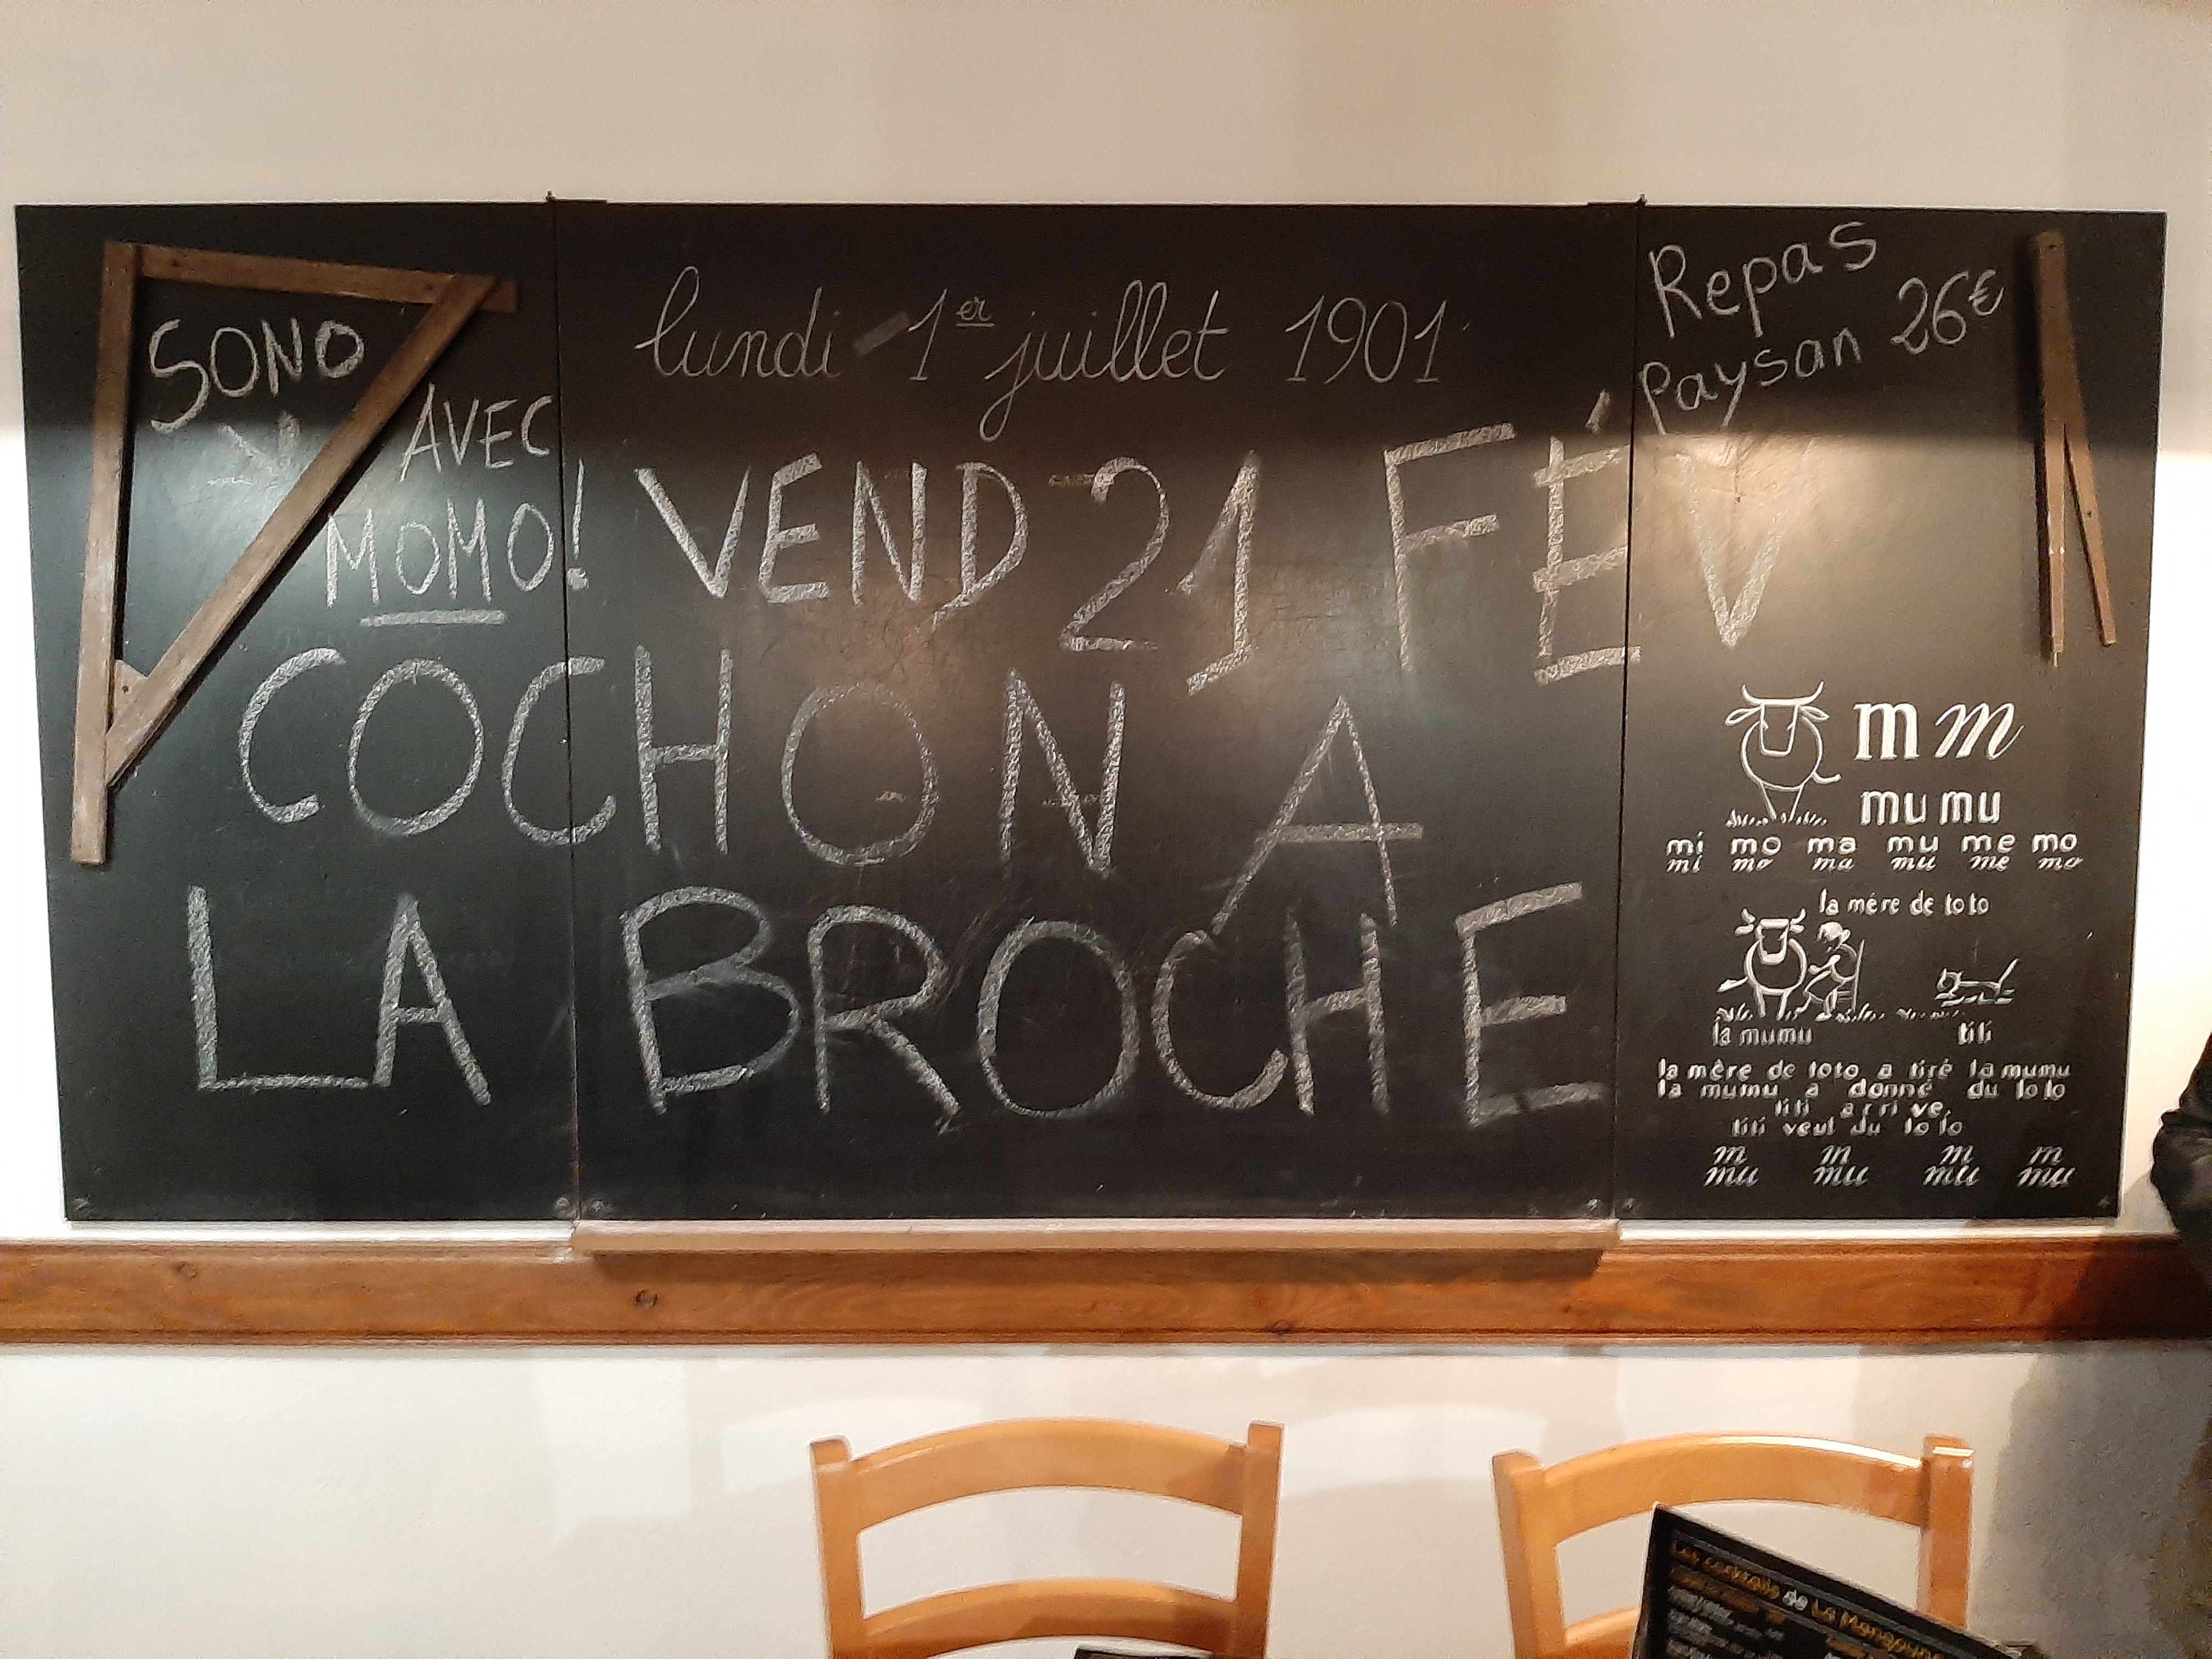 SONO
AVEC
MOMO!
lundi 1er juillet 1901
VEND 21 FÉV
COCHON A
LA BROCHE
Repas
Paysan 26€
m m
mu mu
mi mo ma mu me mo
mi mo ma mu me mo
la mère de toto
la mumu titi
la mère de toto a tiré la mumu
la mumu a donné du lolo
titi arrive,
titi veut du lolo
m m m m
mu mu mu mu
de La